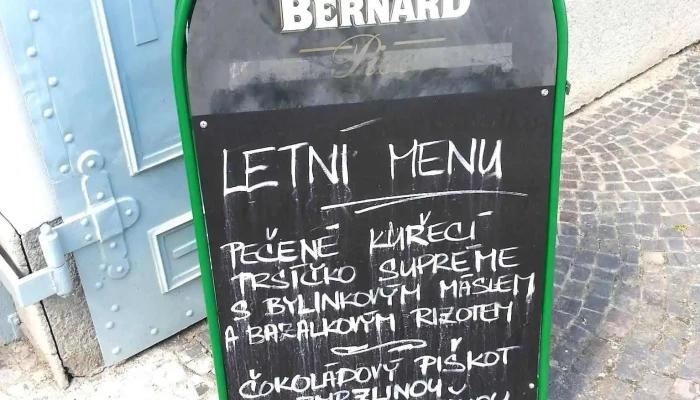 BERNARD
LETNÍ MENU
PEČENÉ KUŘECÍ
PRSÍČKO SUPRÉME
S BYLINKOVÝM MÁSLEM
A BAZALKOVÝM RIZOTEM
ČOKOLÁDOVÝ PIŠKOT